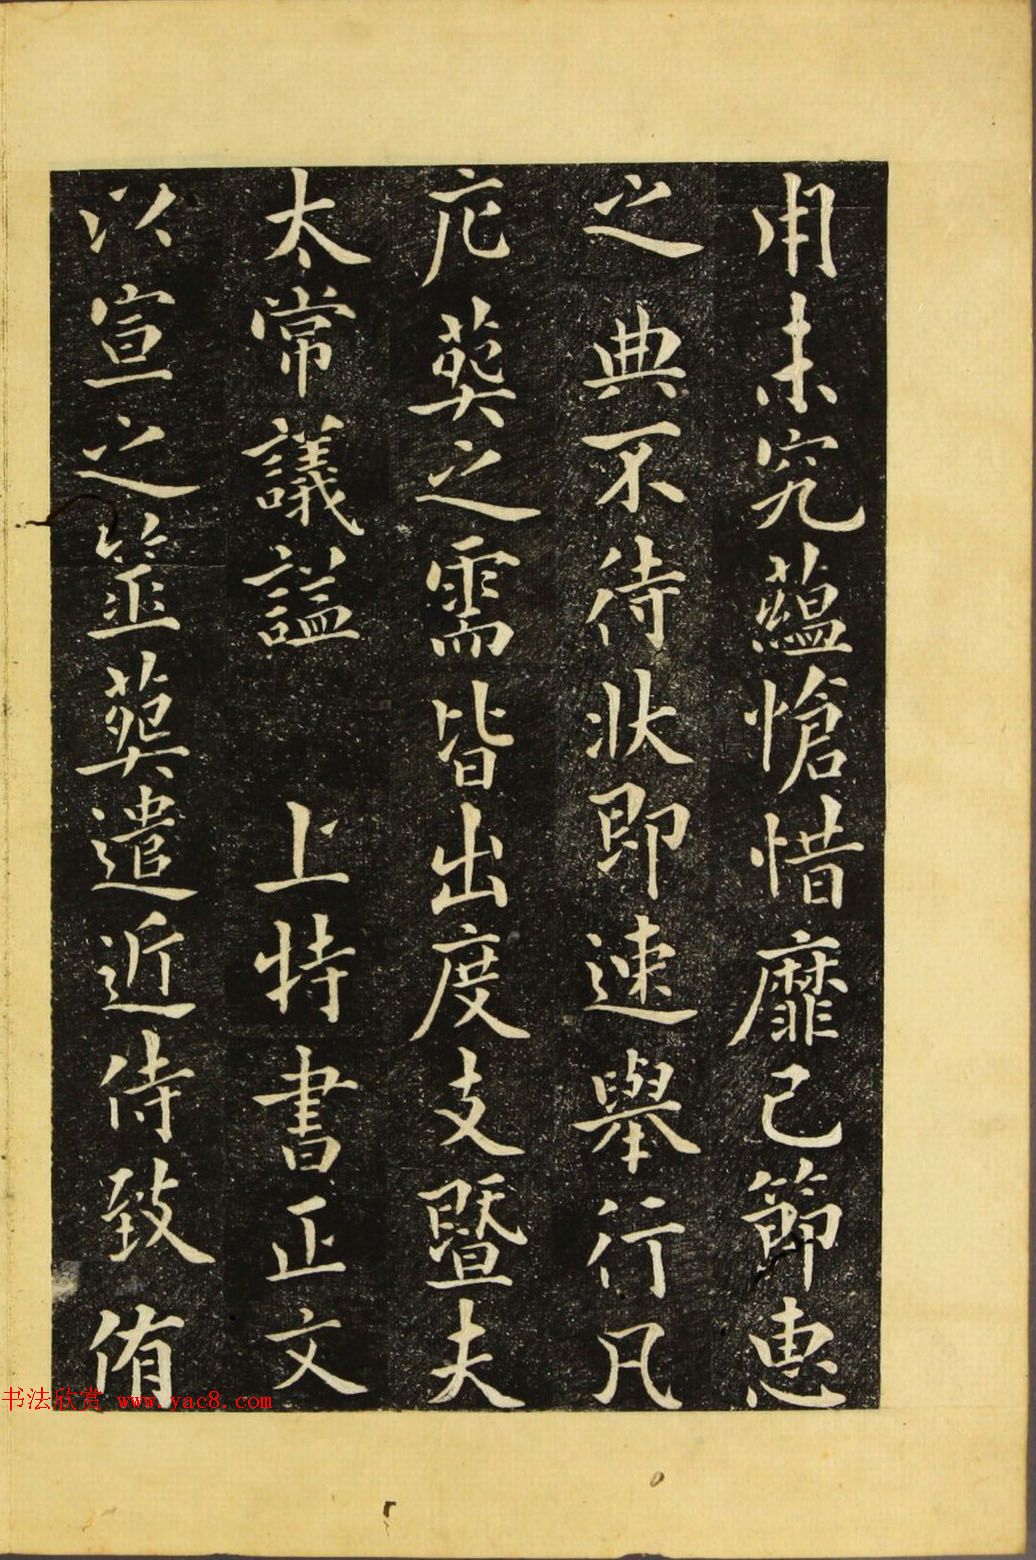 用未究蘊愴惜靡已節惠
之典不待狀即速舉行凡
庀葬之需皆出度支暨夫
太常議謚 上特書正文
以宣之筮葬遣近侍致侑
书法欣赏 www.yac8.com